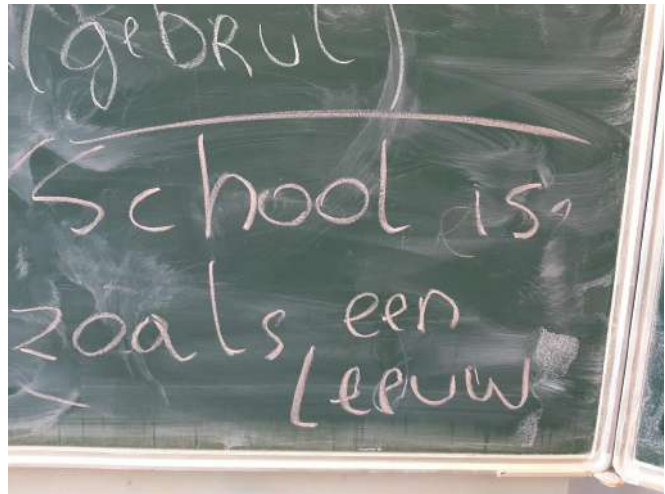 (gebRul)
School is
zoals een
Leeuw